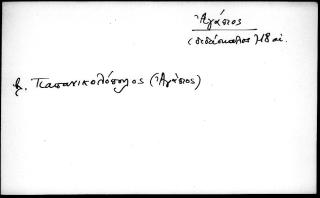 Ἀγάπιος
(διδάσκαλος ΙΗ αἰ.
β. Παπανικολόπουλος (Ἀγάπιος)